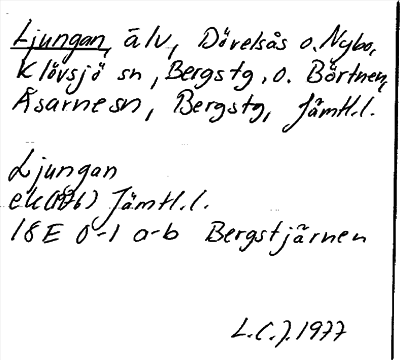 Ljungan, älv, Dövelsås o. Nybo,
Klövsjö sn, Bergstg, o. Börtnen,
Åsarne sn, Bergstg, Jämtl.l.
Ljungan
ek(1976) Jämtl.l.
18E 0-1 a-b Bergstjärnen
L.C.J. 1977